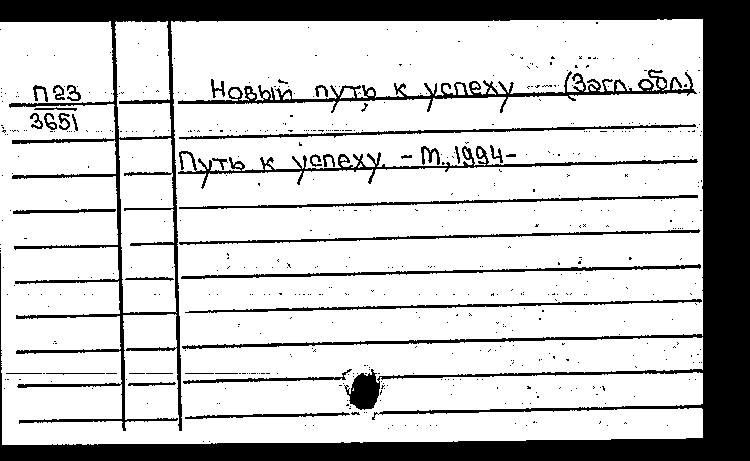 П23 Новый путь к успеху (Загл. обл.)
3651
Путь к успеху. - М., 1994-